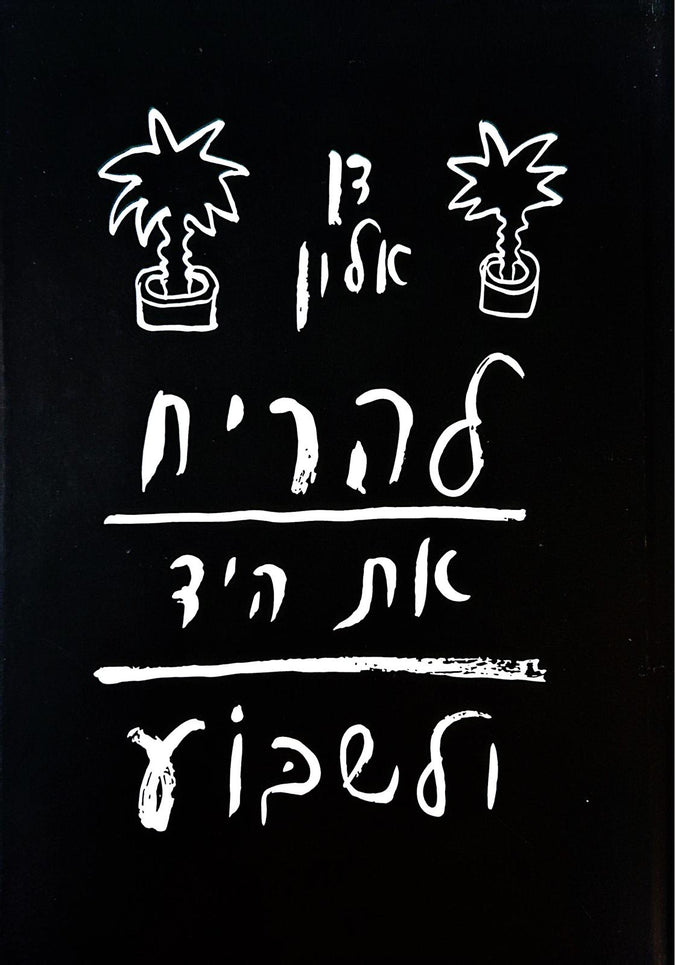 דן
אלון
להריח
את היד
ולשבּוֹע